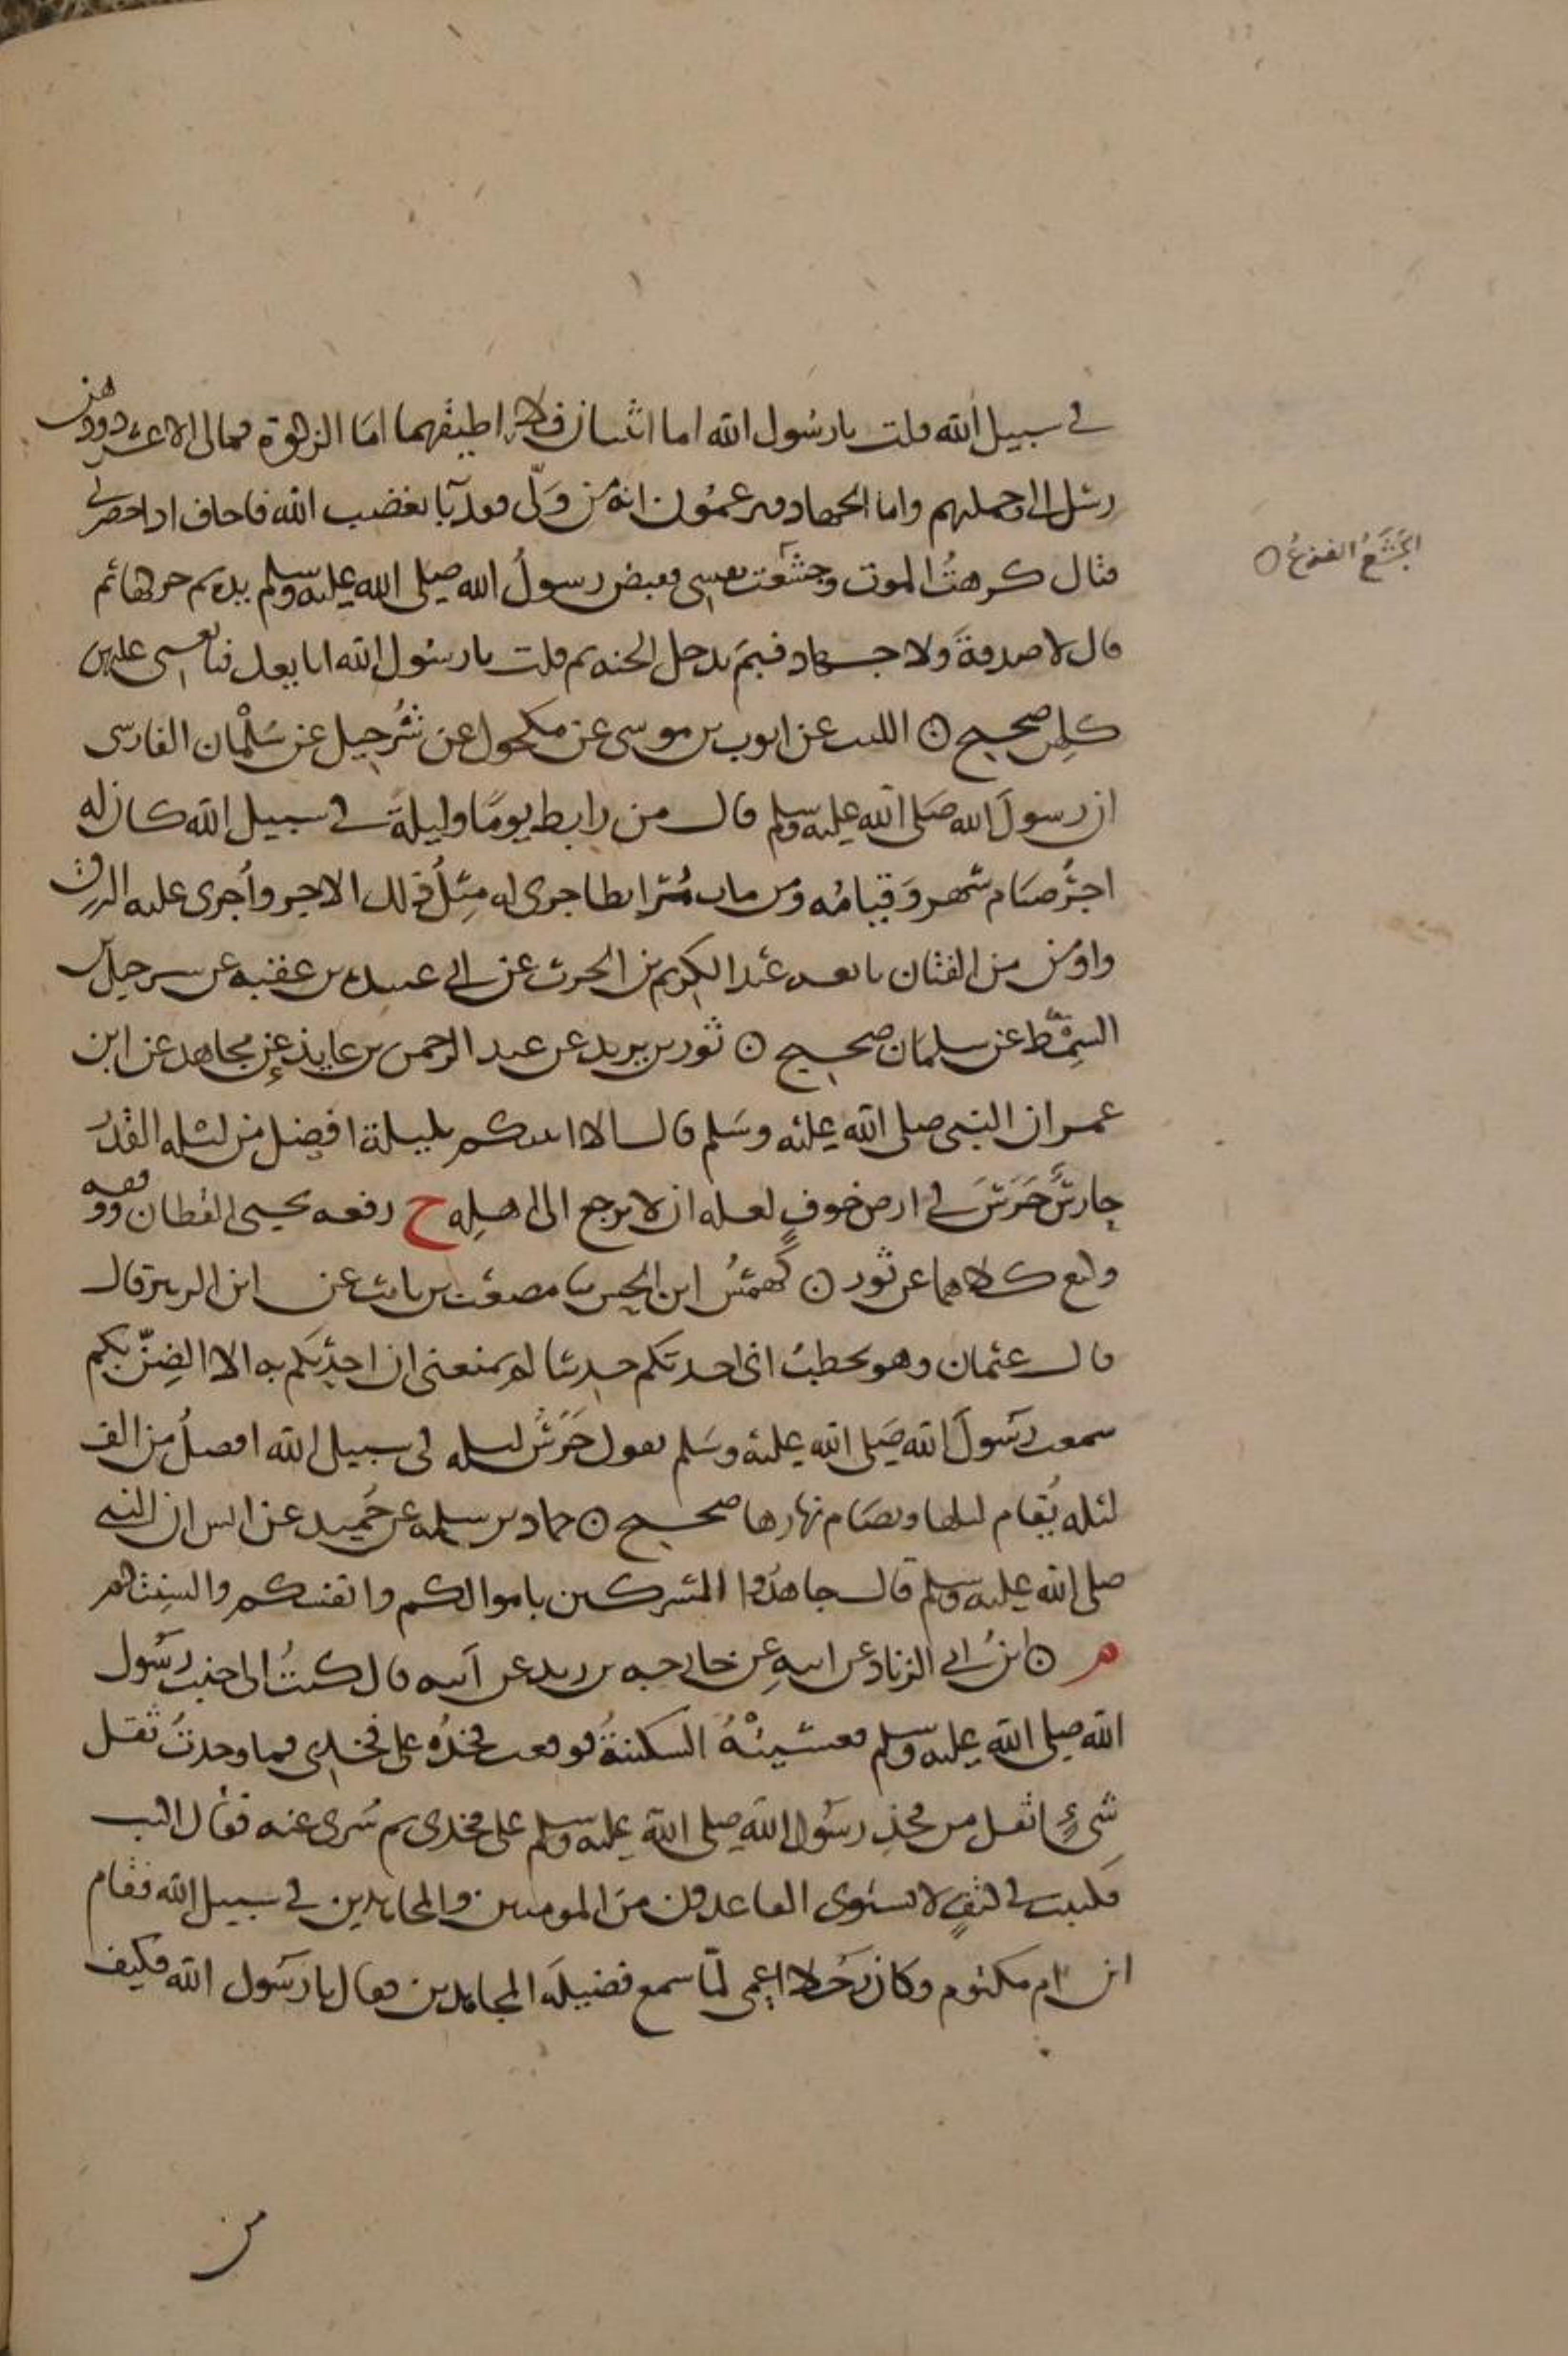 في سبيل الله قلت يا رسول الله اما اثنتان فلا اطيقهما اما الزكوة فمالي الا عشر ذود هن
رسل اهلي وحملتهم واما الجهاد فيزعمون انه من ولّى فقد باء بغضب الله فاخاف اذا حضرني
قتال كرهتُ الموت وجشعت نفسي فقبض رسولُ الله صلى الله عليه وسلم يده ثم حركها ثم
قال لا صدقةَ ولا جهاد فبمَ تدخل الجنه ثم قلت يا رسول الله ابايعك فبايعني عليهن
كلهن صحيح ۞ الليث عن ايوب بن موسى عن مكحول عن شُرحبيل عن سَلْمان الفارسي
ان رسولَ الله صَلى الله عليه وسلم قال من رابط يومًا وليلةً في سبيل الله كان له
اجرُ صيام شهر وَقيامُه ومن مات مُرابطا جرى له مِثلُ ذلك الاجر وأُجرى عليه الرزق
واومن من الفتان تابعه عبد الكريم بن الحرث عن ابي عبيده بن عقبه عن سرحبيل بن
السِمْط عن سلمان صحيح ۞ ثور بن يزيد عن عبد الرحمن بن عايذ عن مجاهد عن ابن
عمر ان النبي صلى الله عليْه وسَلم قال الا انبيكم بليلة افضل من ليله القدر
حارسٌ حَرَسَ في ارض خوفٍ لعله ان لا يرجع الى اهلِه خ رفعه يحيى القطان ووقفه
وكيع كلاهما عن ثور ۞ كَهمسُ ابن الحسن ثنا مصعب بن ثابت عن ابن الزبير قال
قال عثمان وهو يخطبُ اني احدثكم حديثا لم يمنعني ان احدّثكم به الا الضِنّ بكم
سمعت رَسولَ الله صَلى الله عليه وسَلم يقول حَرَسُ ليله في سبيل الله افضلُ من الف
ليله يُقام ليلها ويصَام نهارها صحيح ۞ حماد بن سلمه عن حُميد عن انس ان النبي
صلى الله عليه وسلم قال جاهدُوا المشركين باموالكم وانفسكم والسِنتكم
م ۞ ابنُ ابي الزناد عن ابيه عِن خارجه بن زيد عن ابيه قال كنتُ الى جنب رسُول
الله صلى الله عليه وسلم فغشيتْهُ السكينةُ فوقعت فخذُه على فخذي فما وجدتُ ثقل
شيءٍ اثقل من فخذِ رسُول الله صلى الله عليه وسلم على فخذى ثم سُرى عنه فقال اكتب
فكتبت في كتفٍ لا يستوى القاعدون منَ المومنين والمجاهدين في سبيل الله فقام
ابن ام مكتوم وكان رَجُلا اعمى لمّا سمع فضيلَه المجاهدين فقال يا رَسول الله فكيف
من
الجَشَعُ الفزعُ ۞